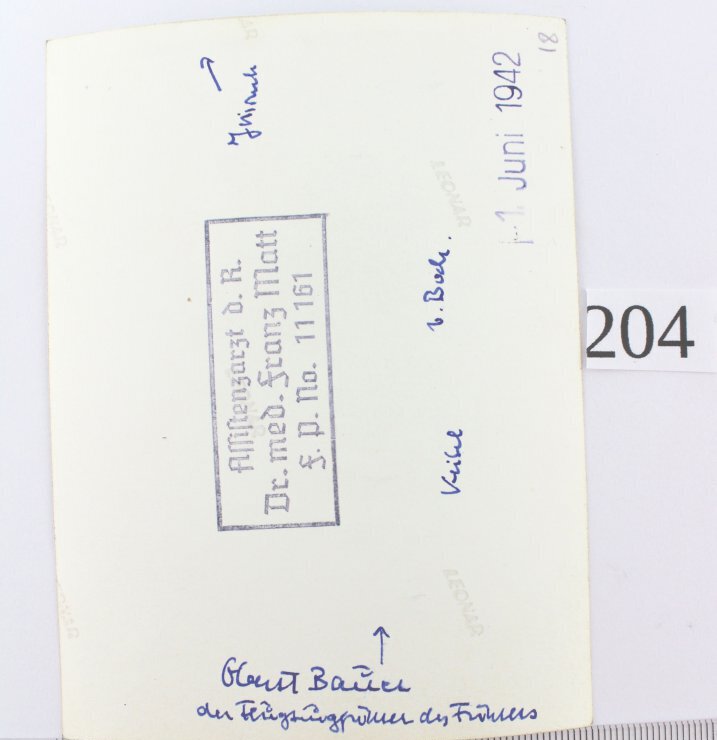 18
1. Juni 1942
Assistenzarzt d. R.
Dr. med. Franz Matt
F. P. No. 11161
v. Bock.
Keitel
204
Oberst Bauer
der Flugzeugführer des Führers
LEONAR
LEONAR
LEONAR